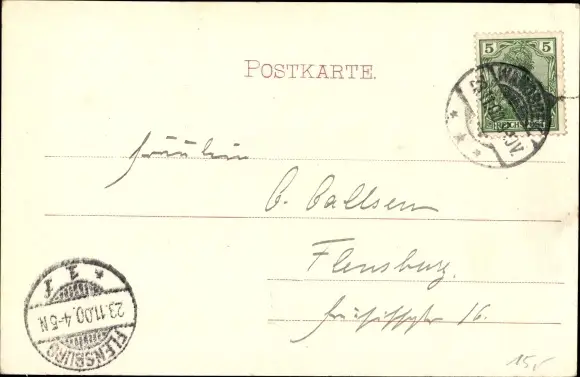 5 5
POSTKARTE.
Fräulein
C. Callsen
Flensburg.
16.
FLENSBURG
* 1 f
23.11.00. 4-5 N.
15,-